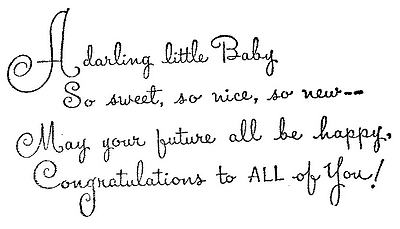 A darling little Baby
So sweet, so nice, so new--
May your future all be happy,
Congratulations to ALL of You!